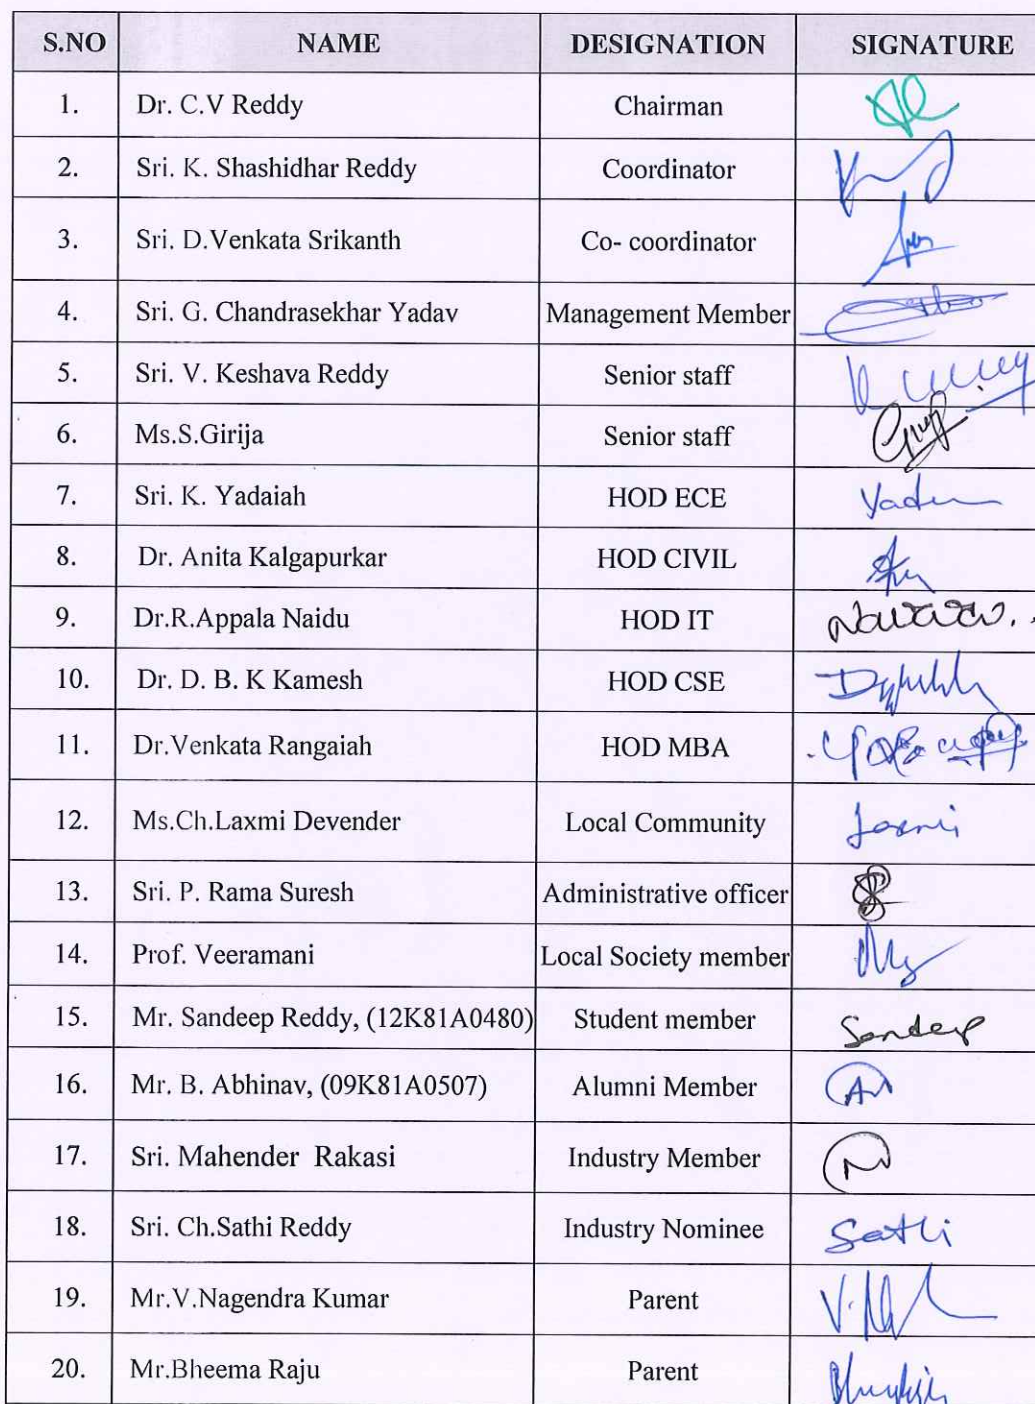 S.NO NAME DESIGNATION SIGNATURE
1. Dr. C.V Reddy Chairman
2. Sri. K. Shashidhar Reddy Coordinator
3. Sri. D.Venkata Srikanth Co- coordinator
4. Sri. G. Chandrasekhar Yadav Management Member
5. Sri. V. Keshava Reddy Senior staff
6. Ms.S.Girija Senior staff
7. Sri. K. Yadaiah HOD ECE
8. Dr. Anita Kalgapurkar HOD CIVIL
9. Dr.R.Appala Naidu HOD IT
10. Dr. D. B. K Kamesh HOD CSE
11. Dr.Venkata Rangaiah HOD MBA
12. Ms.Ch.Laxmi Devender Local Community
13. Sri. P. Rama Suresh Administrative officer
14. Prof. Veeramani Local Society member
15. Mr. Sandeep Reddy, (12K81A0480) Student member Sandeep
16. Mr. B. Abhinav, (09K81A0507) Alumni Member
17. Sri. Mahender Rakasi Industry Member
18. Sri. Ch.Sathi Reddy Industry Nominee Sathi
19. Mr.V.Nagendra Kumar Parent
20. Mr.Bheema Raju Parent